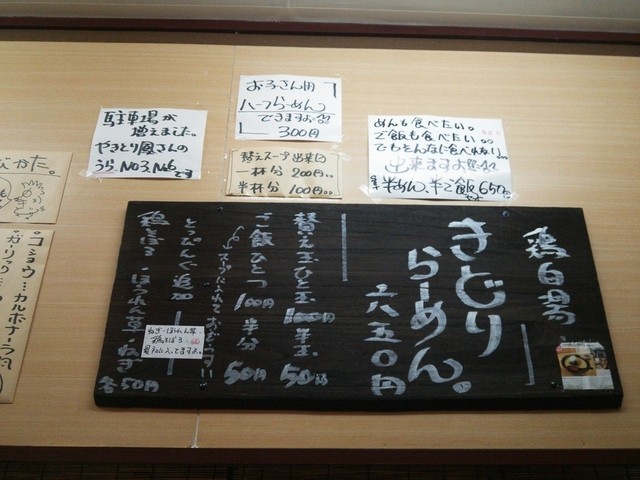 駐車場が
増えました。
やきとり鳳さんの
うら、No3、No6、です
お子さん用
ハーフらーめん
できますよ
300円
替えスープ出来〼
一杯分 200円
半杯分 100円
めんも食べたい。
ご飯も食べたい。
でもそんなに食べれない
出来ますよ
半めん、半ご飯 650円
鶏白湯
きどり
らーめん。
八五〇円
替え玉ひと玉 100円 半玉 50円
ご飯ひとつ 100円 半分 50円
スープに入れておじやに
とっぴんぐ追加
鶏そぼろ・ほうれん草・ねぎ
各50円
ねぎ・ほうれん草・
鶏そぼろ
コショウ…カルボナーラ風
ガーリック